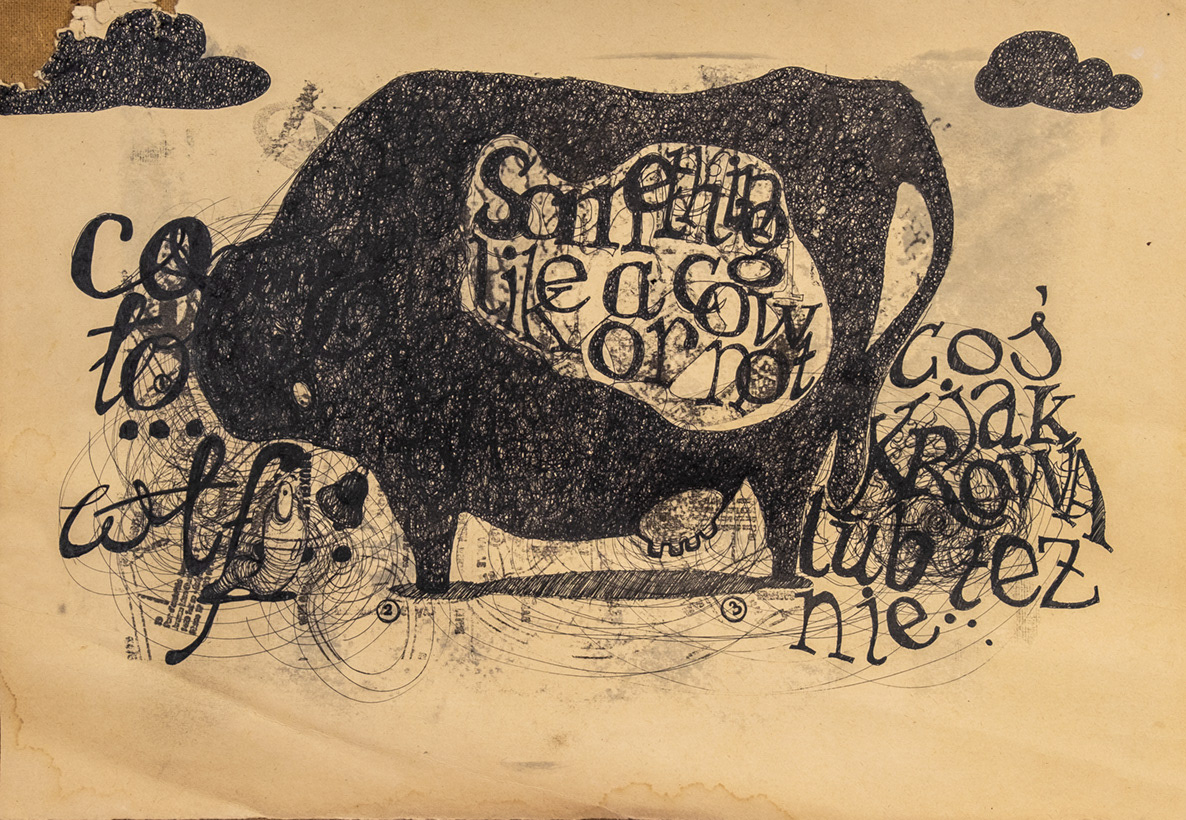 co
to
...
wtf...
Something
like a cow
or not
coś
jak
KROWA
lub też
nie...
2
3